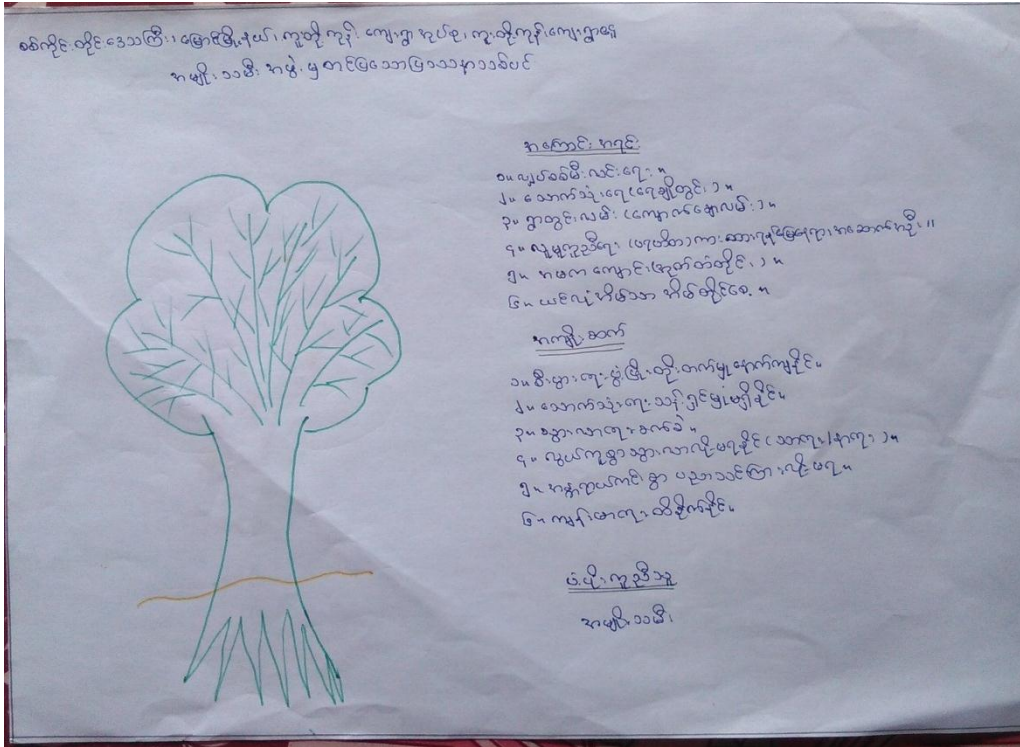 စစ်ကိုင်းတိုင်းဒေသကြီး၊ မြောင်မြို့နယ်၊ ကူတို့ကုန်းကျေးရွာအုပ်စု၊ ကူးတို့ကုန်းကျေးရွာနေ
အမျိုးသမီးအဖွဲ့မှ တင်ပြသောပြဿနာသစ်ပင်
အကြောင်းအရင်း
၁။ လျှပ်စစ်မီးလင်းရေး။
၂။ သောက်သုံးရေ (ရေချိုတွင်း)။
၃။ ရွာတွင်းလမ်း (ကျောက်ချောလမ်း)။
၄။ လူမှုကူညီရေး (ပရဟိတ) ကားထားရန်မြေနေရာ၊ အဆောက်အဦး။
၅။ အမက ကျောင်း (အုတ်တံတိုင်း)။
၆။ ယင်လုံအိမ်သာ အိမ်တိုင်စေ့။
အကျိုးဆက်
၁။ စီးပွားရေးဖွံ့ဖြိုးတိုးတက်မှုနောက်ကျနိုင်။
၂။ သောက်သုံးရေးသန့်ရှင်းမှုမရှိနိုင်။
၃။ သွားလာရေးခက်ခဲ။
၄။ လွယ်ကူစွာသွားလာလို့မရနိုင် (သာရေး/နာရေး)။
၅။ အန္တရာယ်ကင်းစွာ ပညာသင်ကြားလို့မရ။
၆။ ကျန်းမာရေးထိခိုက်နိုင်။
ပံ့ပိုးကူညီသူ
အမျိုးသမီး